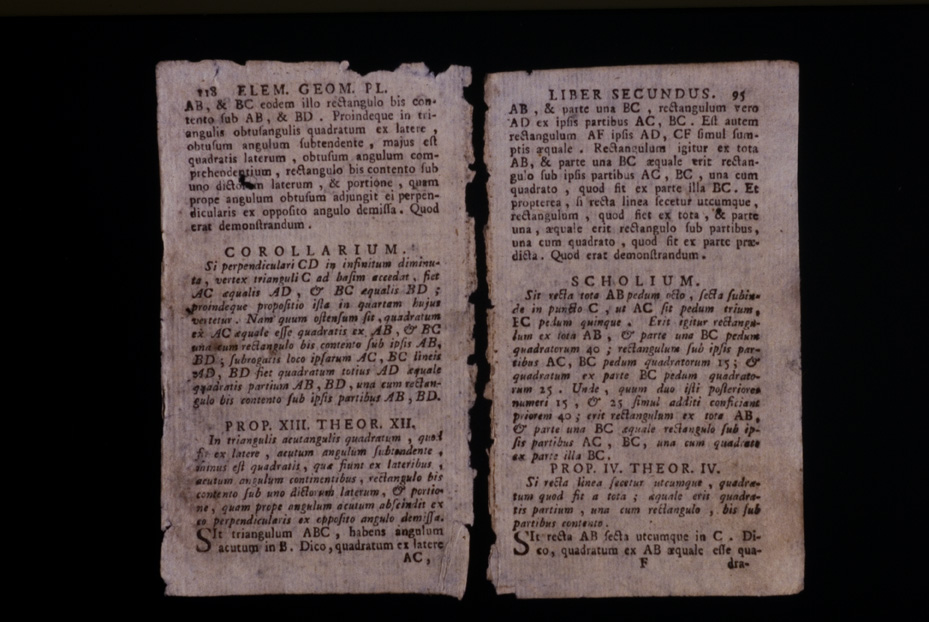 118 ELEM. GEOM. PL.
AB, & BC eodem illo rectangulo bis con-
tento sub AB, & BD. Proindeque in tri-
angulis obtusangulis quadratum ex latere,
obtusum angulum subtendente, majus est
quadratis laterum, obtusum angulum com-
prehendentium, rectangulo bis contento sub
uno dictorum laterum, & portione, quam
prope angulum obtusum adjungit ei perpen-
dicularis ex opposito angulo demissa. Quod
erat demonstrandum.
COROLLARIUM.
Si perpendiculari CD in infinitum diminu-
ta, vertex trianguli C ad basim accedat, fiet
AC æqualis AD, & BC æqualis BD;
proindeque propositio ista in quartam hujus
vertetur. Nam quum ostensum sit, quadratum
ex AC æquale esse quadratis ex AB, & BC
una cum rectangulo bis contento sub ipsis AB,
BD; subrogatis loco ipsarum AC, BC lineis
AD, BD fiet quadratum totius AD æquale
quadratis partium AB, BD, una cum rectan-
gulo bis contento sub ipsis partibus AB, BD.
PROP. XIII. THEOR. XII.
In triangulis acutangulis quadratum, quod
fit ex latere, acutum angulum subtendente,
minus est quadratis, quæ fiunt ex lateribus,
acutum angulum continentibus, rectangulo bis
contento sub uno dictorum laterum, & portio-
ne, quam prope angulum acutum abscindit ex
eo perpendicularis ex opposito angulo demissa.
SIt triangulum ABC, habens angulum
acutum in B. Dico, quadratum ex latere
AC,
LIBER SECUNDUS. 95
AB, & parte una BC, rectangulum vero
AD ex ipsis partibus AC, BC. Est autem
rectangulum AF ipsis AD, CF simul sum-
ptis æquale. Rectangulum igitur ex tota
AB, & parte una BC æquale erit rectan-
gulo sub ipsis partibus AC, BC, una cum
quadrato, quod fit ex parte illa BC. Et
propterea, si recta linea secetur utcumque,
rectangulum, quod fiet ex tota, & parte
una, æquale erit rectangulo sub partibus,
una cum quadrato, quod fit ex parte præ-
dicta. Quod erat demonstrandum.
SCHOLIUM.
Sit recta tota AB pedum octo, secta subin-
de in puncto C, ut AC sit pedum trium,
BC pedum quinque. Erit igitur rectangu-
lum ex tota AB, & parte una BC pedum
quadratorum 40; rectangulum sub ipsis par-
tibus AC, BC pedum quadratorum 15; &
quadratum ex parte BC pedum quadrato-
rum 25. Unde, quum duo isti posteriores
numeri 15, & 25 simul additi conficiant
priorem 40; erit rectangulum ex tota AB,
& parte una BC æquale rectangulo sub ip-
sis partibus AC, BC, una cum quadrato
ex parte illa BC.
PROP. IV. THEOR. IV.
Si recta linea secetur utcumque, quadra-
tum quod fit a tota; æquale erit quadra-
tis partium, una cum rectangulo, bis sub
partibus contento.
SIt recta AB secta utcumque in C. Di-
co, quadratum ex AB æquale esse qua-
F dra-